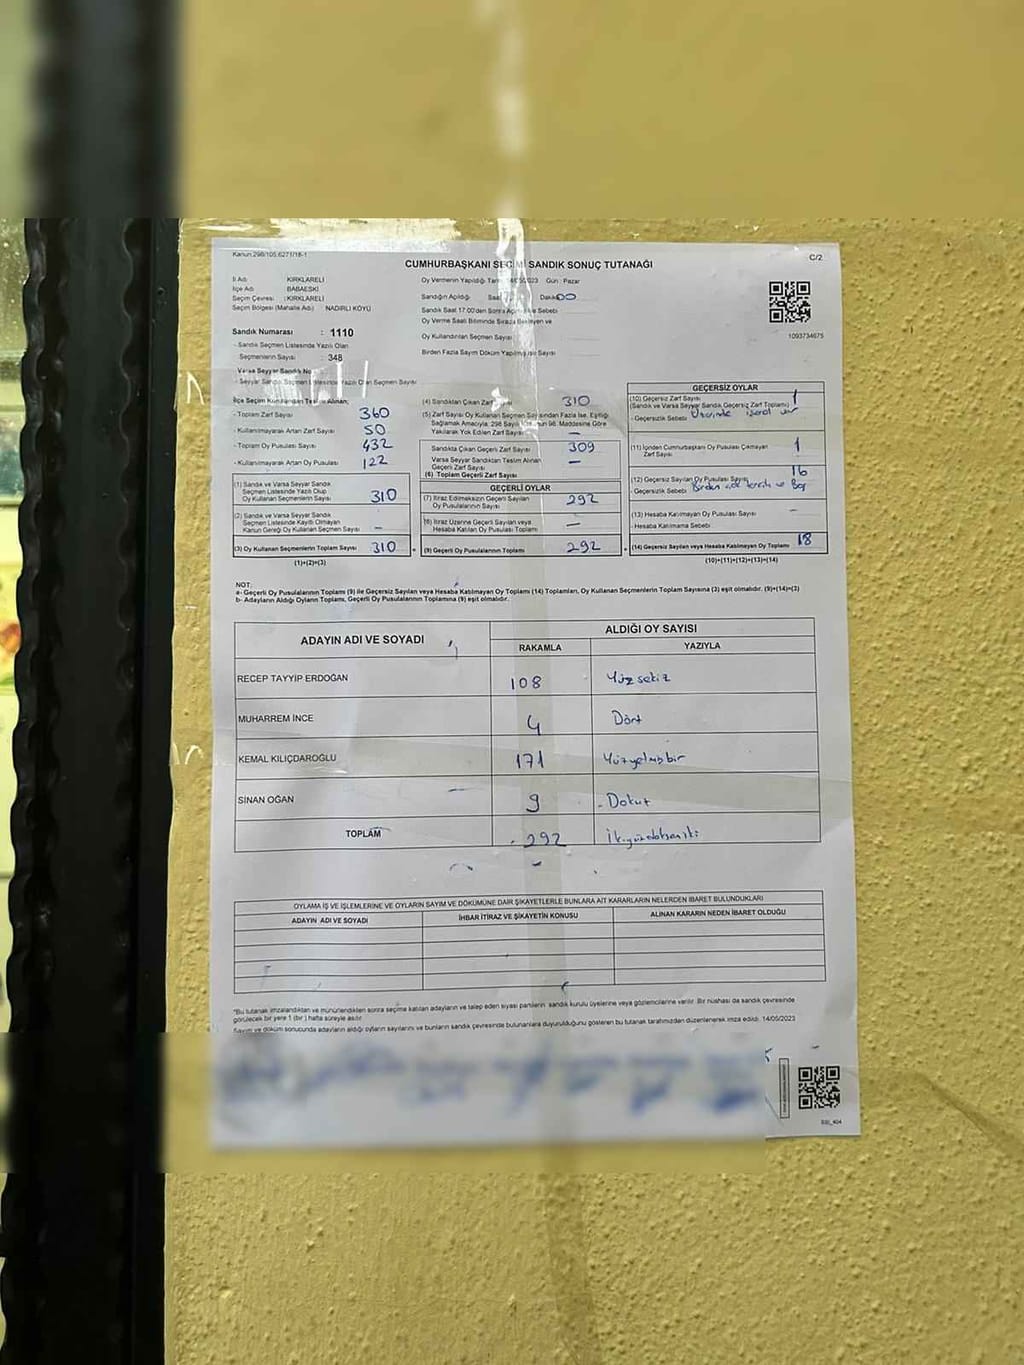 Kanun:298/105,6271/18-1
C/2
CUMHURBAŞKANI SEÇİMİ SANDIK SONUÇ TUTANAĞI
İl Adı : KIRKLARELİ
İlçe Adı : BABAESKİ
Seçim Çevresi : KIRKLARELİ
Seçim Bölgesi (Mahalle Adı) : NADIRLI KÖYÜ
Sandık Numarası : 1110
- Sandık Seçmen Listesinde Yazılı Olan
Seçmenlerin Sayısı : 348
Varsa Seyyar Sandık No
- Seyyar Sandık Seçmen Listesinde Yazılı Olan Seçmen Sayısı
Oy Vermenin Yapıldığı Tarih 14/05/2023 Gün : Pazar
Sandığın Açıldığı Saat Dakika 00
Sandık Saat 17:00'den Sonra Açılmış ise Sebebi
Oy Verme Saati Bitiminde Sırada Bekleyen ve
Oy Kullandırılan Seçmen Sayısı
Birden Fazla Sayım Döküm Yapılmış ise Sayısı
1093734675
İlçe Seçim Kurulundan Teslim Alınan;
- Toplam Zarf Sayısı 360
- Kullanılmayarak Artan Zarf Sayısı 50
- Toplam Oy Pusulası Sayısı 432
- Kullanılmayarak Artan Oy Pusulası 122
(1) Sandık ve Varsa Seyyar Sandık
Seçmen Listesinde Yazılı Olup
Oy Kullanan Seçmenlerin Sayısı 310
(2) Sandık ve Varsa Seyyar Sandık
Seçmen Listesinde Kayıtlı Olmayan
Kanun Gereği Oy Kullanan Seçmen Sayısı -
(3) Oy Kullanan Seçmenlerin Toplam Sayısı 310
(1)+(2)=(3)
(4) Sandıktan Çıkan Zarf Sayısı 310
(5) Zarf Sayısı Oy Kullanan Seçmen Sayısından Fazla ise, Eşitliği
Sağlamak Amacıyla; 298 Sayılı Kanunun 98. Maddesine Göre
Yakılarak Yok Edilen Zarf Sayısı -
Sandıkta Çıkan Geçerli Zarf Sayısı 309
Varsa Seyyar Sandıktan Teslim Alınan
Geçerli Zarf Sayısı -
(6) Toplam Geçerli Zarf Sayısı
GEÇERLİ OYLAR
(7) İtiraz Edilmeksizin Geçerli Sayılan
Oy Pusulasının Sayısı 292
(8) İtiraz Üzerine Geçerli Sayılan veya
Hesaba Katılan Oy Pusulası Toplamı -
(9) Geçerli Oy Pusulalarının Toplamı 292
GEÇERSİZ OYLAR
(10) Geçersiz Zarf Sayısı 1
(Sandık ve Varsa Seyyar Sandık Geçersiz Zarf Toplamı)
- Geçersizlik Sebebi Üzerinde işaret var
(11) İçinden Cumhurbaşkanı Oy Pusulası Çıkmayan
Zarf Sayısı 1
(12) Geçersiz Sayılan Oy Pusulası Sayısı 16
- Geçersizlik Sebebi Birden çok tercih ve Boş
(13) Hesaba Katılmayan Oy Pusulası Sayısı -
- Hesaba Katılmama Sebebi
(14) Geçersiz Sayılan veya Hesaba Katılmayan Oy Toplamı 18
(10)+(11)+(12)+(13)=(14)
NOT:
a- Geçerli Oy Pusulalarının Toplamı (9) ile Geçersiz Sayılan veya Hesaba Katılmayan Oy Toplamı (14) Toplamları, Oy Kullanan Seçmenlerin Toplam Sayısına (3) eşit olmalıdır. (9)+(14)=(3)
b- Adayların Aldığı Oyların Toplamı, Geçerli Oy Pusulalarının Toplamına (9) eşit olmalıdır.
ADAYIN ADI VE SOYADI
ALDIĞI OY SAYISI
RAKAMLA YAZIYLA
RECEP TAYYİP ERDOĞAN 108 Yüzsekiz
MUHARREM İNCE 4 Dört
KEMAL KILIÇDAROĞLU 171 Yüzyetmişbir
SİNAN OĞAN 9 Dokuz
TOPLAM 292 İkiyüzdoksaniki
OYLAMA İŞ VE İŞLEMLERİNE VE OYLARIN SAYIM VE DÖKÜMÜNE DAİR ŞİKAYETLERLE BUNLARA AİT KARARLARIN NELERDEN İBARET BULUNDUKLARI
ADAYIN ADI VE SOYADI İHBAR İTİRAZ VE ŞİKAYETİN KONUSU ALINAN KARARIN NEDEN İBARET OLDUĞU
*Bu tutanak imzalandıktan ve mühürlendikten sonra seçime katılan adayların ve talep eden siyasi partilerin sandık kurulu üyelerine veya gözlemcilerine verilir. Bir nüshası da sandık çevresinde
görülecek bir yere 1 (bir) hafta süreyle asılır.
Sayım ve döküm sonucunda adayların aldığı oyların sayılarını ve bunların sandık çevresinde bulunanlara duyurulduğunu gösteren bu tutanak tarafımızdan düzenlenerek imza edildi. 14/05/2023